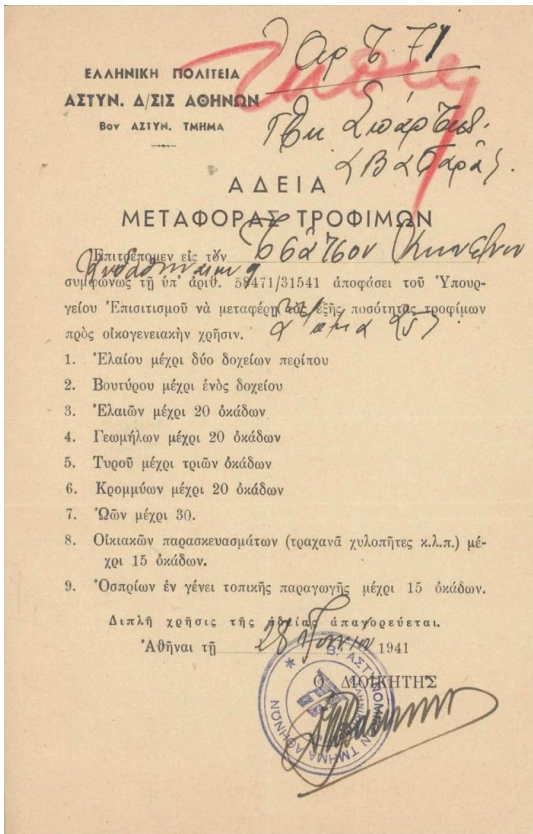 Ἀρ. 71
ΕΛΛΗΝΙΚΗ ΠΟΛΙΤΕΙΑ
ΑΣΤΥΝ. Δ/ΣΙΣ ΑΘΗΝΩΝ
Βον ΑΣΤΥΝ. ΤΜΗΜΑ
ΑΔΕΙΑ
ΜΕΤΑΦΟΡΑΣ ΤΡΟΦΙΜΩΝ
Ἐπιτρέπομεν εἰς τὸν
συμφώνως τῇ ὑπ' ἀριθ. 58471/31541 ἀποφάσει τοῦ Ὑπουρ-
γείου Ἐπισιτισμοῦ νὰ μεταφέρῃ τὰς ἑξῆς ποσότητας τροφίμων
πρὸς οἰκογενειακὴν χρῆσιν.
1. Ἐλαίου μέχρι δύο δοχείων περίπου
2. Βουτύρου μέχρι ἑνὸς δοχείου
3. Ἐλαιῶν μέχρι 20 ὀκάδων
4. Γεωμήλων μέχρι 20 ὀκάδων
5. Τυροῦ μέχρι τριῶν ὀκάδων
6. Κρομμύων μέχρι 20 ὀκάδων
7. Ὠῶν μέχρι 30.
8. Οἰκιακῶν παρασκευασμάτων (τραχανᾶ χυλοπῆτες κ.λ.π.) μέ-
χρι 15 ὀκάδων.
9. Ὀσπρίων ἐν γένει τοπικῆς παραγωγῆς μέχρι 15 ὀκάδων.
Διπλῆ χρῆσις τῆς ἀδείας ἀπαγορεύεται.
Ἀθῆναι τῇ 28 1941
Ὁ ΔΙΟΙΚΗΤΗΣ
Β. ΑΣΤΥΝΟΜΙΚΟΝ ΤΜΗΜΑ ΑΘΗΝΩΝ